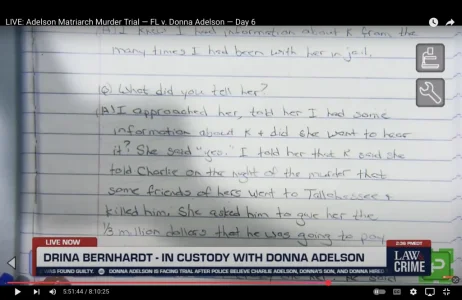 LIVE: Adelson Matriarch Murder Trial — FL v. Donna Adelson — Day 6
(A) I knew I had information about K from the
many times I had been with her in jail.
(Q) What did you tell her?
(A) I approached her, told her I had some
information about K + did she want to hear
it? She said "yes." I told her that K said she
told Charlie on the night of the murder that
some friends of hers went to Tallahassee,
killed him. She asked him to give her the
1/3 million dollars that he was going to pay
LIVE NOW
2:36 PM EDT
DRINA BERNHARDT - IN CUSTODY WITH DONNA ADELSON
LAW&
CRIME
WAS FOUND GUILTY.
DONNA ADELSON IS FACING TRIAL AFTER POLICE BELIEVE CHARLIE ADELSON, DONNA'S SON, AND DONNA HIRED
5:51:44 / 8:10:25